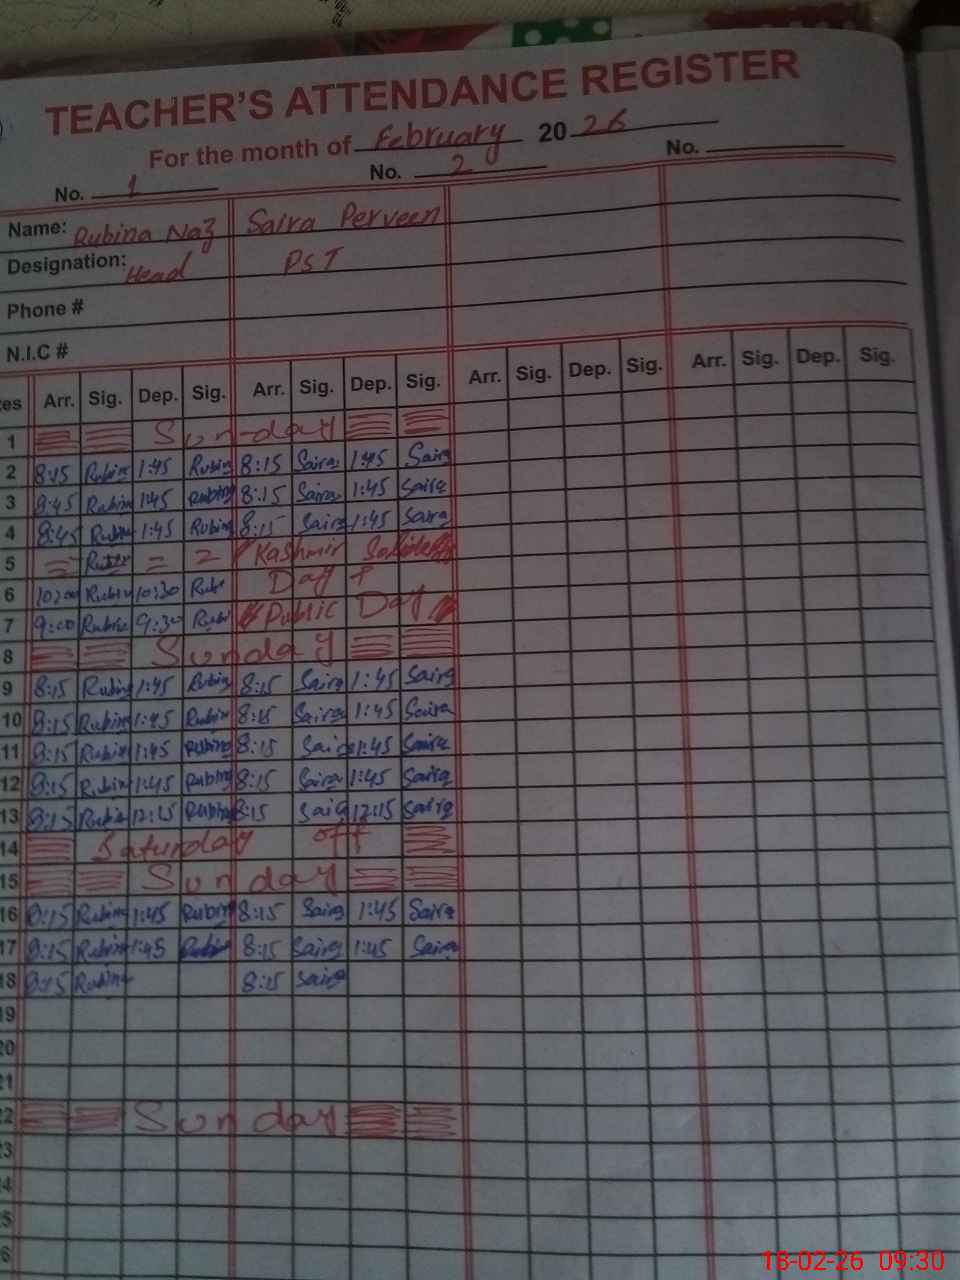 TEACHER'S ATTENDANCE REGISTER
For the month of February 20 26
No. 1 No. 2 No.
Name: Rubina Naz Saira Perveen
Designation: Head PST
Phone #
N.I.C #
es Arr. Sig. Dep. Sig. Arr. Sig. Dep. Sig. Arr. Sig. Dep. Sig. Arr. Sig. Dep. Sig.
1 Sunday
2 8:15 Rubina 1:45 Rubina 8:15 Saira 1:45 Saira
3 8:45 Rubina 1:45 Rubina 8:15 Saira 1:45 Saira
4 8:45 Rubina 1:45 Rubina 8:15 Saira 1:45 Saira
5 = = = Kashmir
6 10:00 Rubina 10:30 Rubi Day
7 9:00 Rubina 9:30 Rubi Public Day
8 Sunday
9 8:15 Rubina 1:45 Rubina 8:15 Saira 1:45 Saira
10 8:15 Rubina 1:45 Rubina 8:15 Saira 1:45 Saira
11 8:15 Rubina 1:45 Rubina 8:15 Saira 1:45 Saira
12 8:15 Rubina 1:45 Rubina 8:15 Saira 1:45 Saira
13 8:15 Rubina 12:15 Rubina 8:15 Saira 12:15 Saira
14 Saturday off
15 Sunday
16 8:15 Rubina 1:45 Rubina 8:15 Saira 1:45 Saira
17 8:15 Rubina 1:45 Rubina 8:15 Saira 1:45 Saira
18 8:15 Rubina 8:15 Saira
19
20
21
22 Sunday
3
4
5
6
18-02-26 09:30